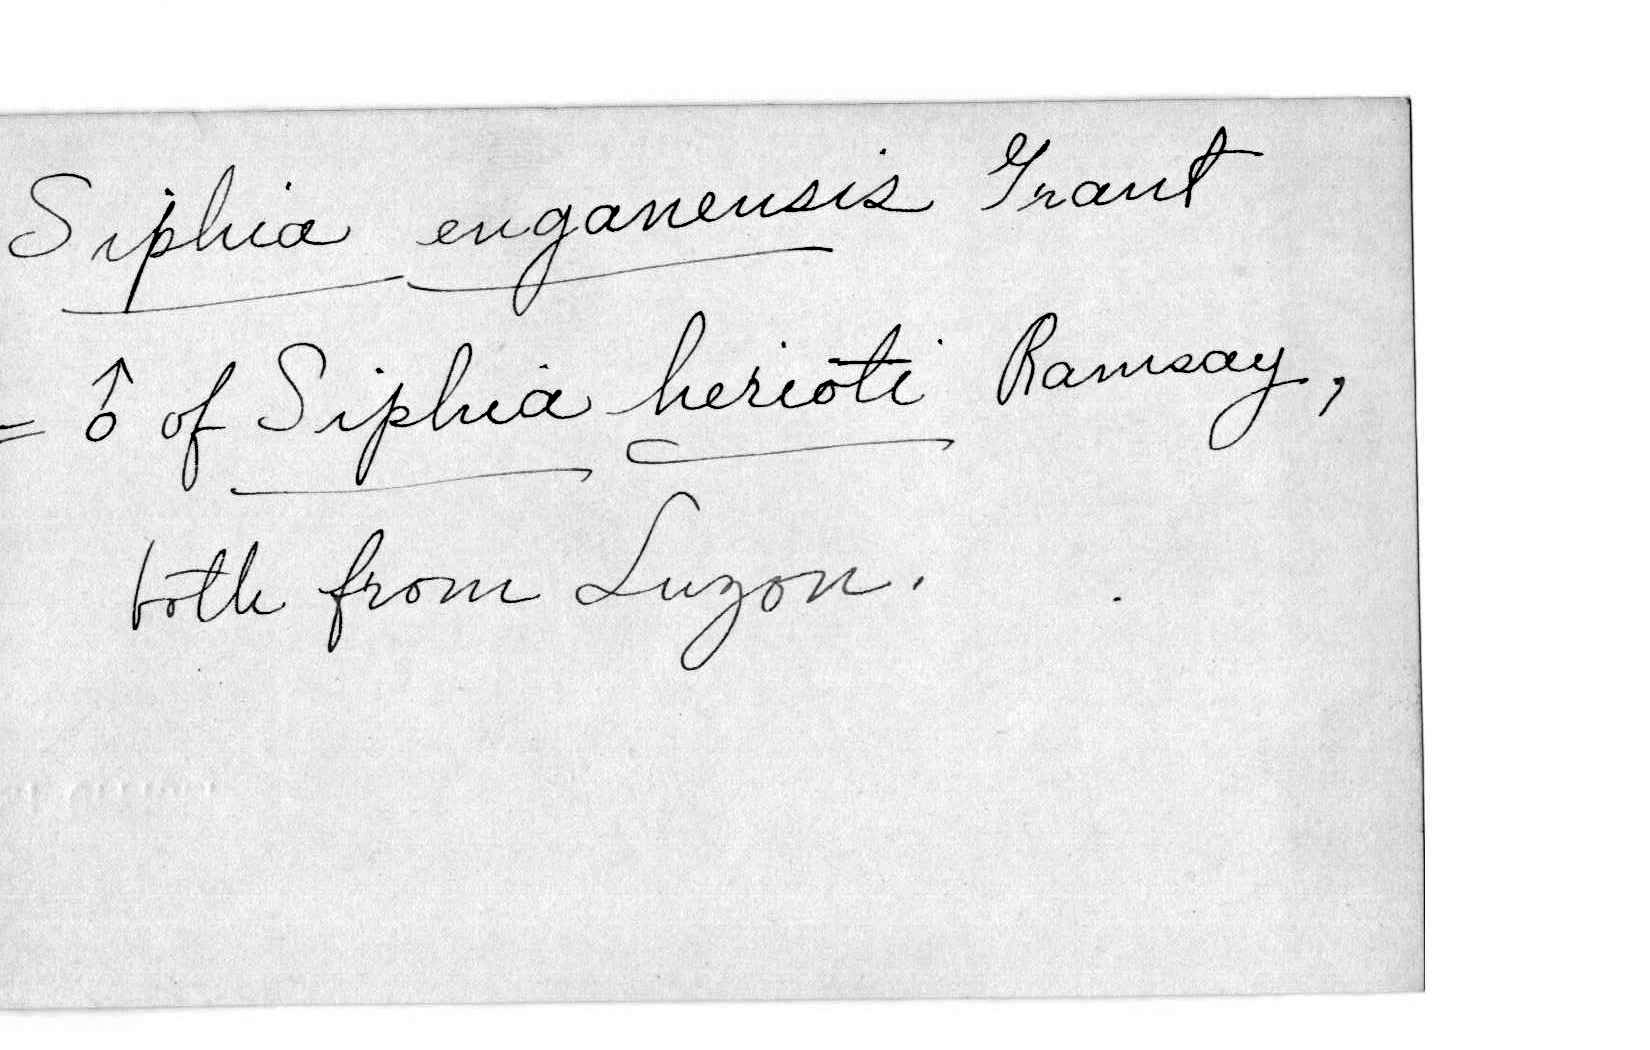 Siphia enganensis Grant
= ♂ of Siphia herioti Ramsay,
both from Luzon.